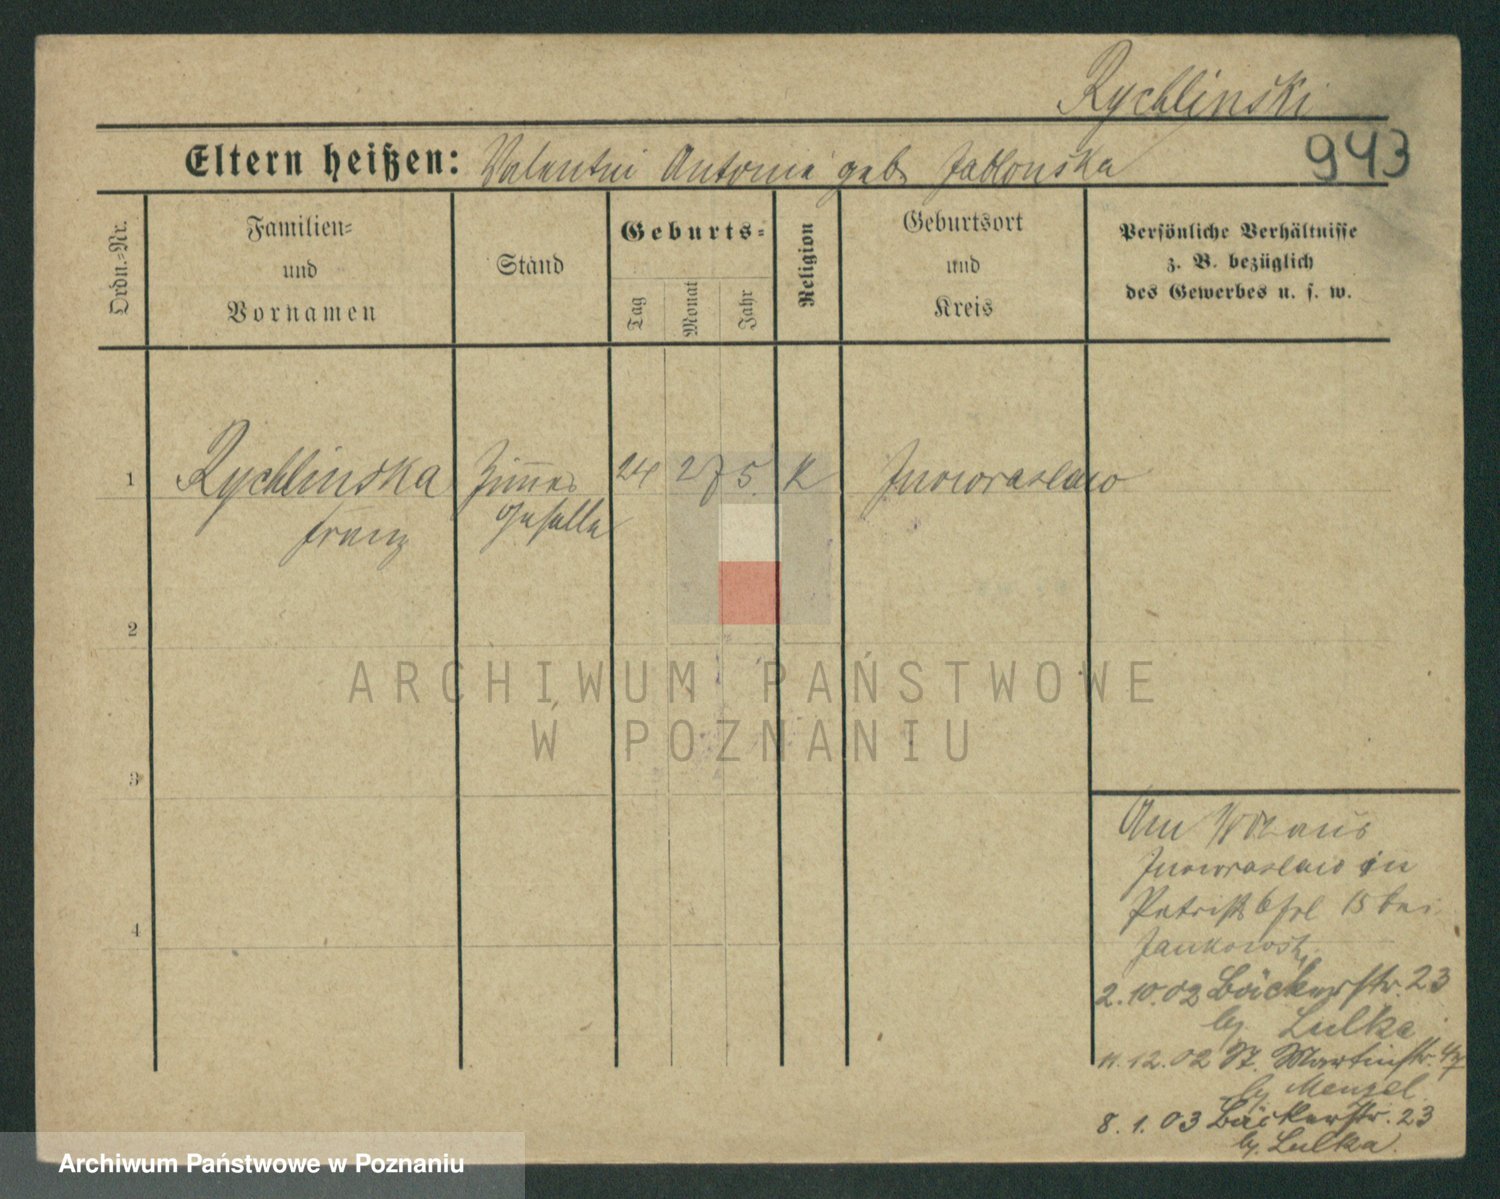 Rychlinski
943
Eltern heißen: Valentin Antonie geb Jablonska
Ordn.-Nr.
Familien-
und
Vornamen
Stand
Geburts-
Tag
Monat
Jahr
Religion
Geburtsort
und
Kreis
Persönliche Verhältnisse
z. B. bezüglich
des Gewerbes u. s. w.
1
Rychlinska
Franz
Zimmer
Geselle
24 2 75 K Inowraslaw
2
3
4
ARCHIWUM PAŃSTWOWE
W POZNANIU
aus
Inowraslaw in
15 bei
Jankowski
2.10.02 Bäckerstr. 23
by Lulka
11.12.02 St. Martinstr. 47
by Menzel
8.1.03 Bäckerstr. 23
by. Lulka.
Archiwum Państwowe w Poznaniu